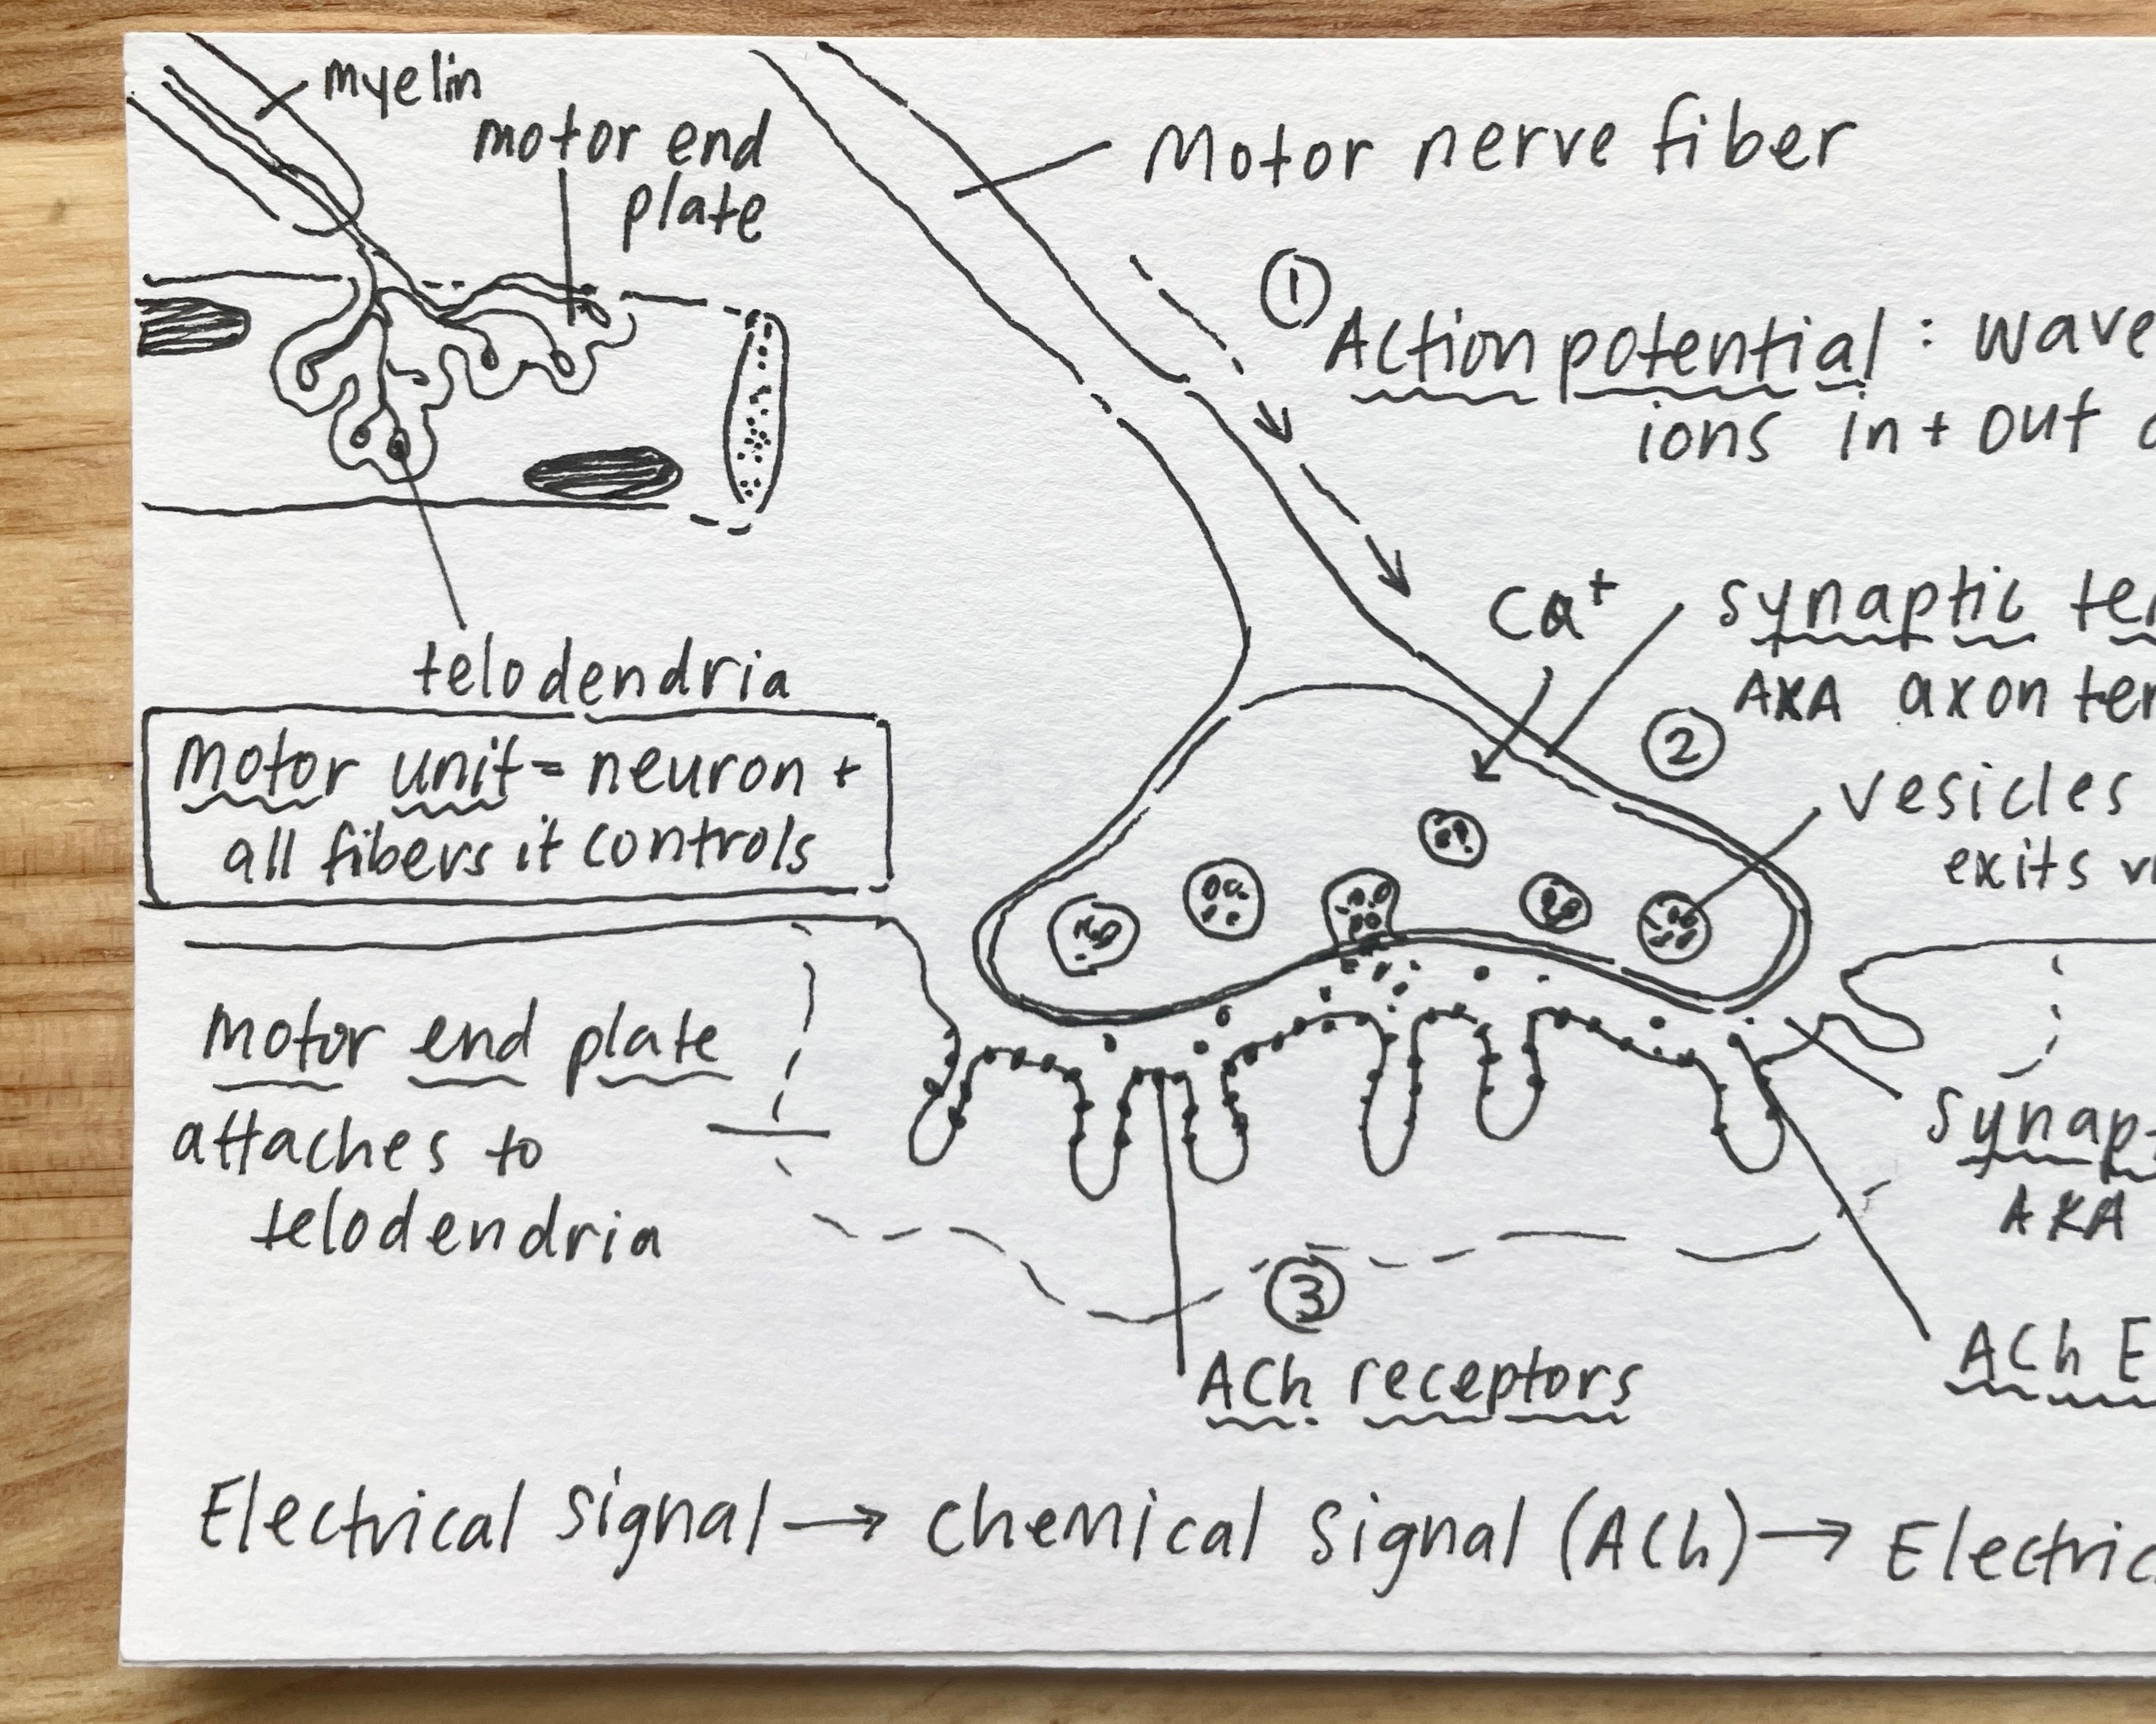 myelin
motor end
plate
Motor nerve fiber
①
Action potential: wave
ions in + out
telodendria
Ca⁺
synaptic
AKA axon
②
vesicles
exits
motor unit = neuron +
all fibers it controls
motor end plate
attaches to
telodendria
AKA
③
ACh receptors
ACh E
Electrical signal → chemical signal (ACh) →